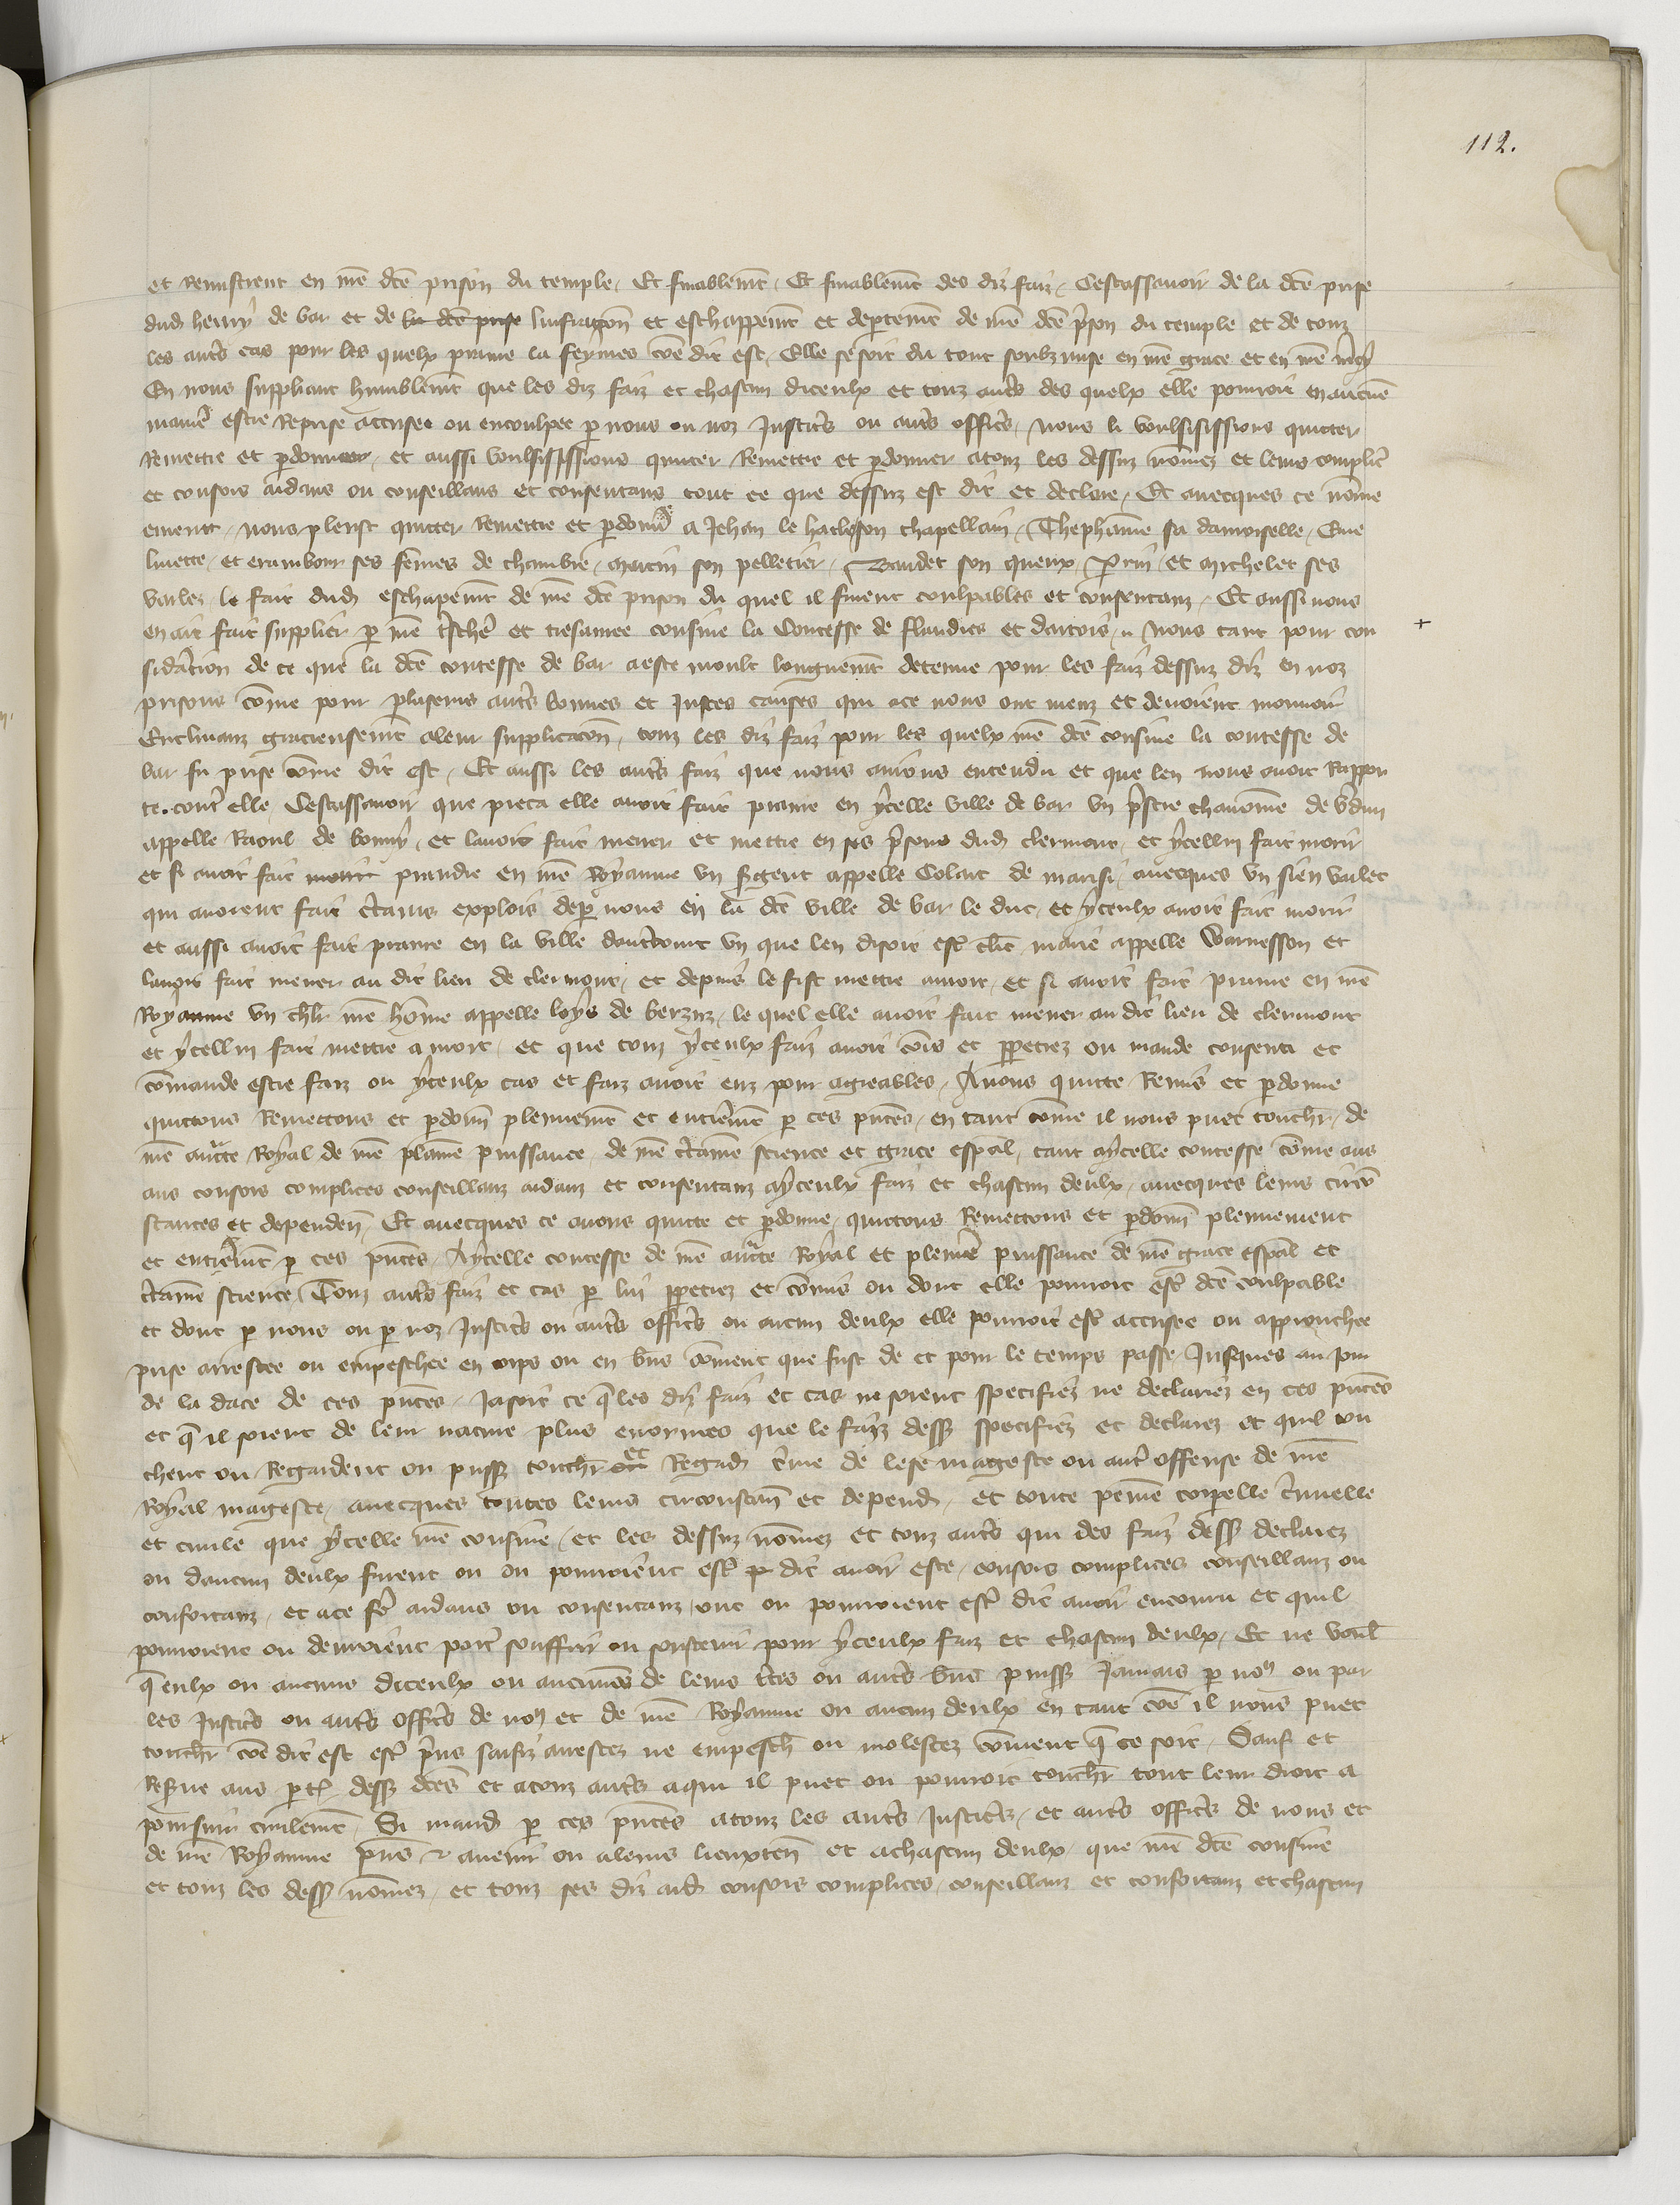 112.
et remistrent en nrē dcē prison du temple. Et finablemt̄. Et finablemt̄ des diz faiz. Cestassavoir de la dcē prise
dud henry de bar et de la dcē prise linfracōn et eschappemt̄ et departemt̄ de nrē dcē prison du temple et de touz
les autˢ cas pour les quelx prinse la feymes cōe dit est. Elle se soit du tout soubzmise en nrē grace et en nrē mcy
En nous suppliant humblemt̄ que les diz faiz et chascun diceulx et touz autˢ des quelx elle pourroit en aucune
maniē estre reprise accusee ou encoulpee p nous ou noz justicˢ ou autˢ officˢ, nous li voulsisissions quitter
remettre et pdonner, et aussi voulsisissions quitter remettre et pdonner a touz les dessuz nōmez et leurs complicˢ
et consors aidans ou conseillans et consentans tout ce que dessuz est dit et declare. Et avecques ce nōmee
ement. nous pleust quitter remettre et pdonnˢ a Jehan le hacheson chapellain. Thephanie sa damoiselle. Eve
linette. et erambour ses fēmes de chambre. martin son pelletier. Baudet son queux. Perrin. et michelet ses
varlez. le fait dud eschapemt̄ de nrē dcē prison du quel il furent coulpables et consentanz. Et aussi nous
en ait fait supplier p nrē treschiē et tresamee cousine la Contesse de flandres et dartois. nous tant pour con
sidācion de ce que la dcē contesse de bar a este moult longuemt̄ detenue pour les faiz dessuz diz en noz
prisons cōme pour pluseurs autˢ bonnes et justes causes qui a ce nous ont meuz et devoient mouvoir
Enclinanz gracieusemt̄ a leur supplicacōn, touz les diz faiz pour les quelx nrē dcē cousine la contesse de
bar fu prise cōme dit est. Et aussi les autˢ faiz que nous avions entendu et que len nous avoit rappor
te contˢ elle. Cestassavoir que pieca elle avoit fait prāre en ycelle ville de bar un prestre chanoine de vdun
appelle Raoul de bonny, et lavoit fait mener et mettre en ses prisons dud clermont, et ycellui fait morir
et si avoit fait morir prandre en nrē Royaume un sgent appelle Colart de marisi. avecques un sien varlet
qui avoient fait ctains explois depar nous en la dcē ville de bar le duc, et yceulx avoit fait morir
et aussi avoit fait prānre en la ville un que len disoit estˢ clerc marie appelle Warnesson et
lavoit fait mener au dit lieu de clermont, et depuis le fist mettre a mort, et si avoit fait prānre en nrē
Royaume un chlr nrē hōme appelle loys de berzuz, le quel elle avoit fait mener au dit lieu de clermont
et ycellui fait mettre a mort. et que touz yceulx faiz avoit cōis et ppetrez ou mande consenti et
cōmande estre faiz ou yceulx cas et faiz avoit euz pour agreables. Avons quitte Remis et pdonne
quittons Remettons et pdonn̄ plenemt̄ et entiēmt̄ p ces pntēs, en tant cōme il nous puet touchr. de
nrē auctē Royal de nrē plaine puissance, de nrē ctaine science et grace espal, tant a ycelle contesse cōme aus
aus consors complices conseillanz aidanz et consentanz a yceulx faiz et chascun deulx, avecques leurs circō
stances et dependen̄. Et avecques ce avons quitte et pdonne, quittons Remettons et pdonn̄ plenement
et entiēmt̄ p ces pntēs. A ycelle contesse de nrē auctē Royal et pleniē puissance de nrē grace espal et
ctaine science. Touz autˢ faiz et cas p lui ppetrez et cōmis ou dont elle pourroit estˢ dcē coulpable
et dont p nous ou p noz justicˢ ou autˢ officˢ ou aucun deulx elle pourroit estˢ accusee ou approuchee
prise arrestee ou empeschee en corps ou en bns cōment que fust de et pour le temps passe. Jusques au jour
de la date de ces pntēs. Ja soit ce q les diz faiz et cas ne soient specifiez ne declarez en ces pntēs
et q il soient de leur nature plus enormes que le faiz dess specifiez et declarez et quil tou
chent ou Regardent ou puiss touchr ou et Regard cīme de lese mageste ou autˢ offense de nrē
Royal mageste. avecques toutes leurs circonstan̄ et depend. et toute peine corpelle cīinelle
et civile que ycelle nrē cousine. et les dessuz nōmez et touz autˢ qui des faiz dess declarez
ou daucun deulx furent ou ou pourroient estˢ dit avoir este. consors complices conseillanz ou
confortanz, et a ce fē aidans ou consentanz, ont ou pourroient estˢ dit avoir encouru et quil
pourroient ou devroient portˢ souffrir ou soustenir pour yceulx faiz et chascun deulx. Et ne voul
q eulx ou aucuns diceulx ou aucunes de leurs tres ou autˢ bns puiss jamais p noˢ ou par
les justicˢ ou autˢ officˢ de noˢ et de nrē Royaume ou aucun deulx en tant cōe il nous puet
touchr cōe dit est estˢ prins saisiz arrestez ne empesch ou molestez cōment q ce soit. Sauf et
resvue aus pties dess dcēs et a touz autˢ a qui il puet ou pourroit touchr tout leur droit a
poursuir civilemt̄. Si mand p ces pntēs a touz les autˢ justicˢ, et autˢ officˢ de nous et
de nrē Royaume pns & avenir ou a leurs lieuxten̄ et a chascun deulx. que nrē dcē cousine
et touz les dess nōmez, et touz ses diz aid consors complices, conseillanz et confortanz et chascun